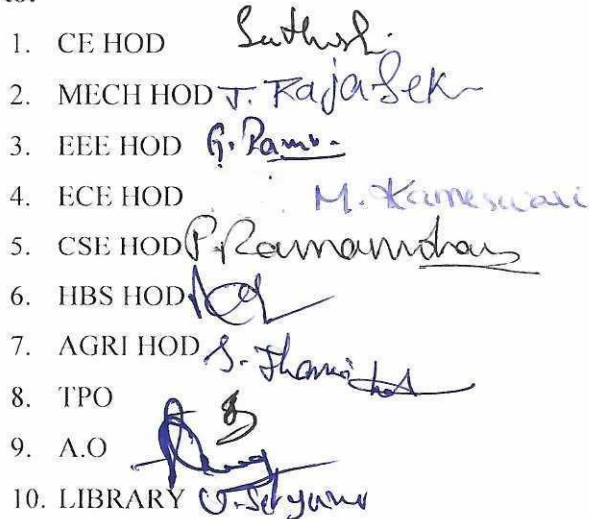 to:
1. CE HOD Sathish.
2. MECH HOD J. RajaSek
3. EEE HOD G. Ramu.
4. ECE HOD M. Kameswari
5. CSE HOD P. Ramamohan
6. HBS HOD
7. AGRI HOD S.
8. TPO
9. A.O
10. LIBRARY